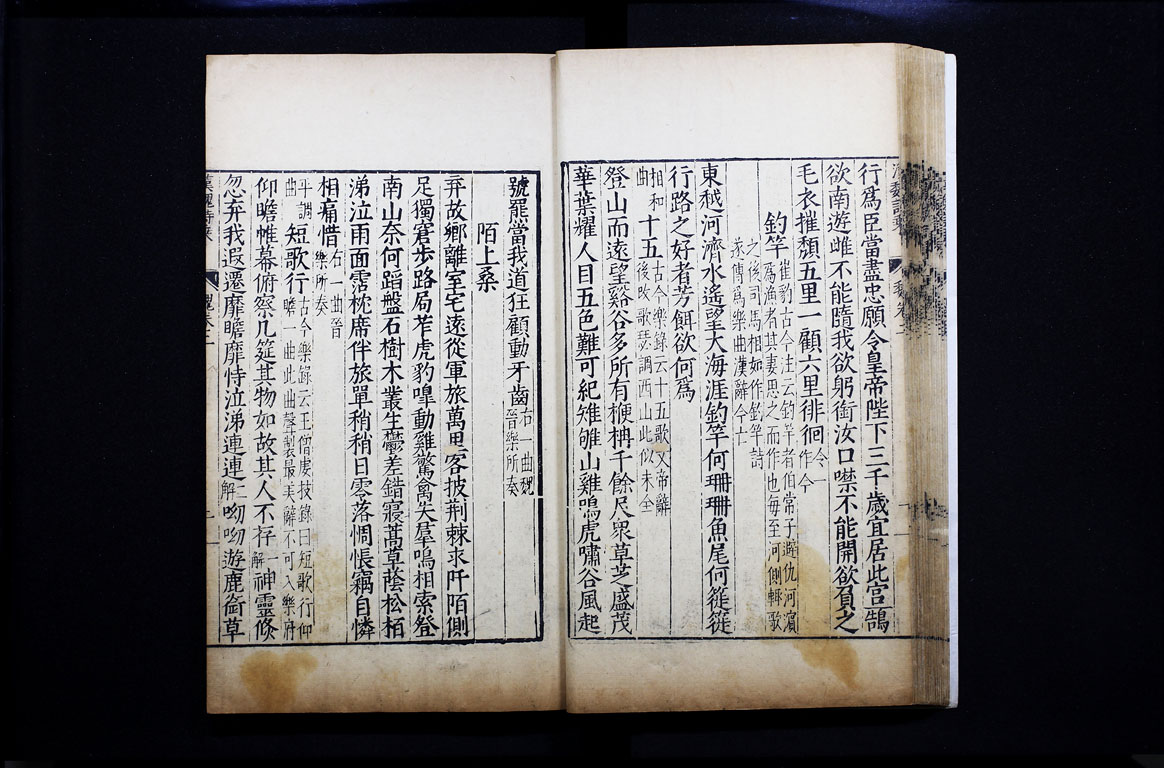 行為臣當盡忠願令皇帝陛下三千歲宜居此宮鵠
欲南遊雌不能隨我欲躬銜汝口噤不能開欲負之
毛衣摧頹五里一顧六里徘徊
釣竿崔豹古今注云釣竿者伯常子避仇河濱
為漁者其妻思之而作也每至河側輒歌
之後司馬相如作釣竿詩
遂傳為樂曲漢辭今亡
東越河濟水遙望大海涯釣竿何珊珊魚尾何簁簁
行路之好者芳餌欲何為
相和曲十五古今樂錄云十五歌文帝辭
後改歌瑟調西山此似未全
登山而遠望谿谷多所有楩柟千餘尺衆草芝盛茂
華葉耀人目五色難可紀雉雊山雞鳴虎嘯谷風起
號罷當我道狂顧動牙齒右一曲魏晉樂所奏
陌上桑
弃故鄉離室宅遠從軍旅萬里客披荊棘求阡陌側
足獨窘步路局苲虎豹嘷動雞驚禽失羣鳴相索登
南山奈何蹈盤石樹木叢生鬱差錯寢蒿草蔭松栢
涕泣雨面霑枕席伴旅單稍稍日零落惆悵竊自憐
相痛惜右一曲晉樂所奏
平調曲短歌行古今樂錄云王僧虔技錄曰短歌行仰
瞻一曲此曲聲製最美辭不可入樂府
仰瞻帷幕俯察几筵其物如故其人不存一解神靈倏
忽弃我遐遷靡瞻靡恃泣涕連連二解呦呦遊鹿銜草